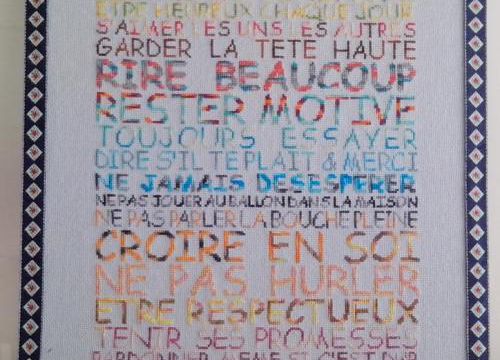 ETRE HEUREUX CHAQUE JOUR
S'AIMER LES UNS LES AUTRES
GARDER LA TETE HAUTE
RIRE BEAUCOUP
RESTER MOTIVE
TOUJOURS ESSAYER
DIRE S'IL TE PLAIT & MERCI
NE JAMAIS DESESPERER
NE PAS JOUER AU BALLON DANS LA MAISON
NE PAS PARLER LA BOUCHE PLEINE
CROIRE EN SOI
NE PAS HURLER
ETRE RESPECTUEUX
TENIR SES PROMESSES
PARDONNER MEME SI C'EST DUR